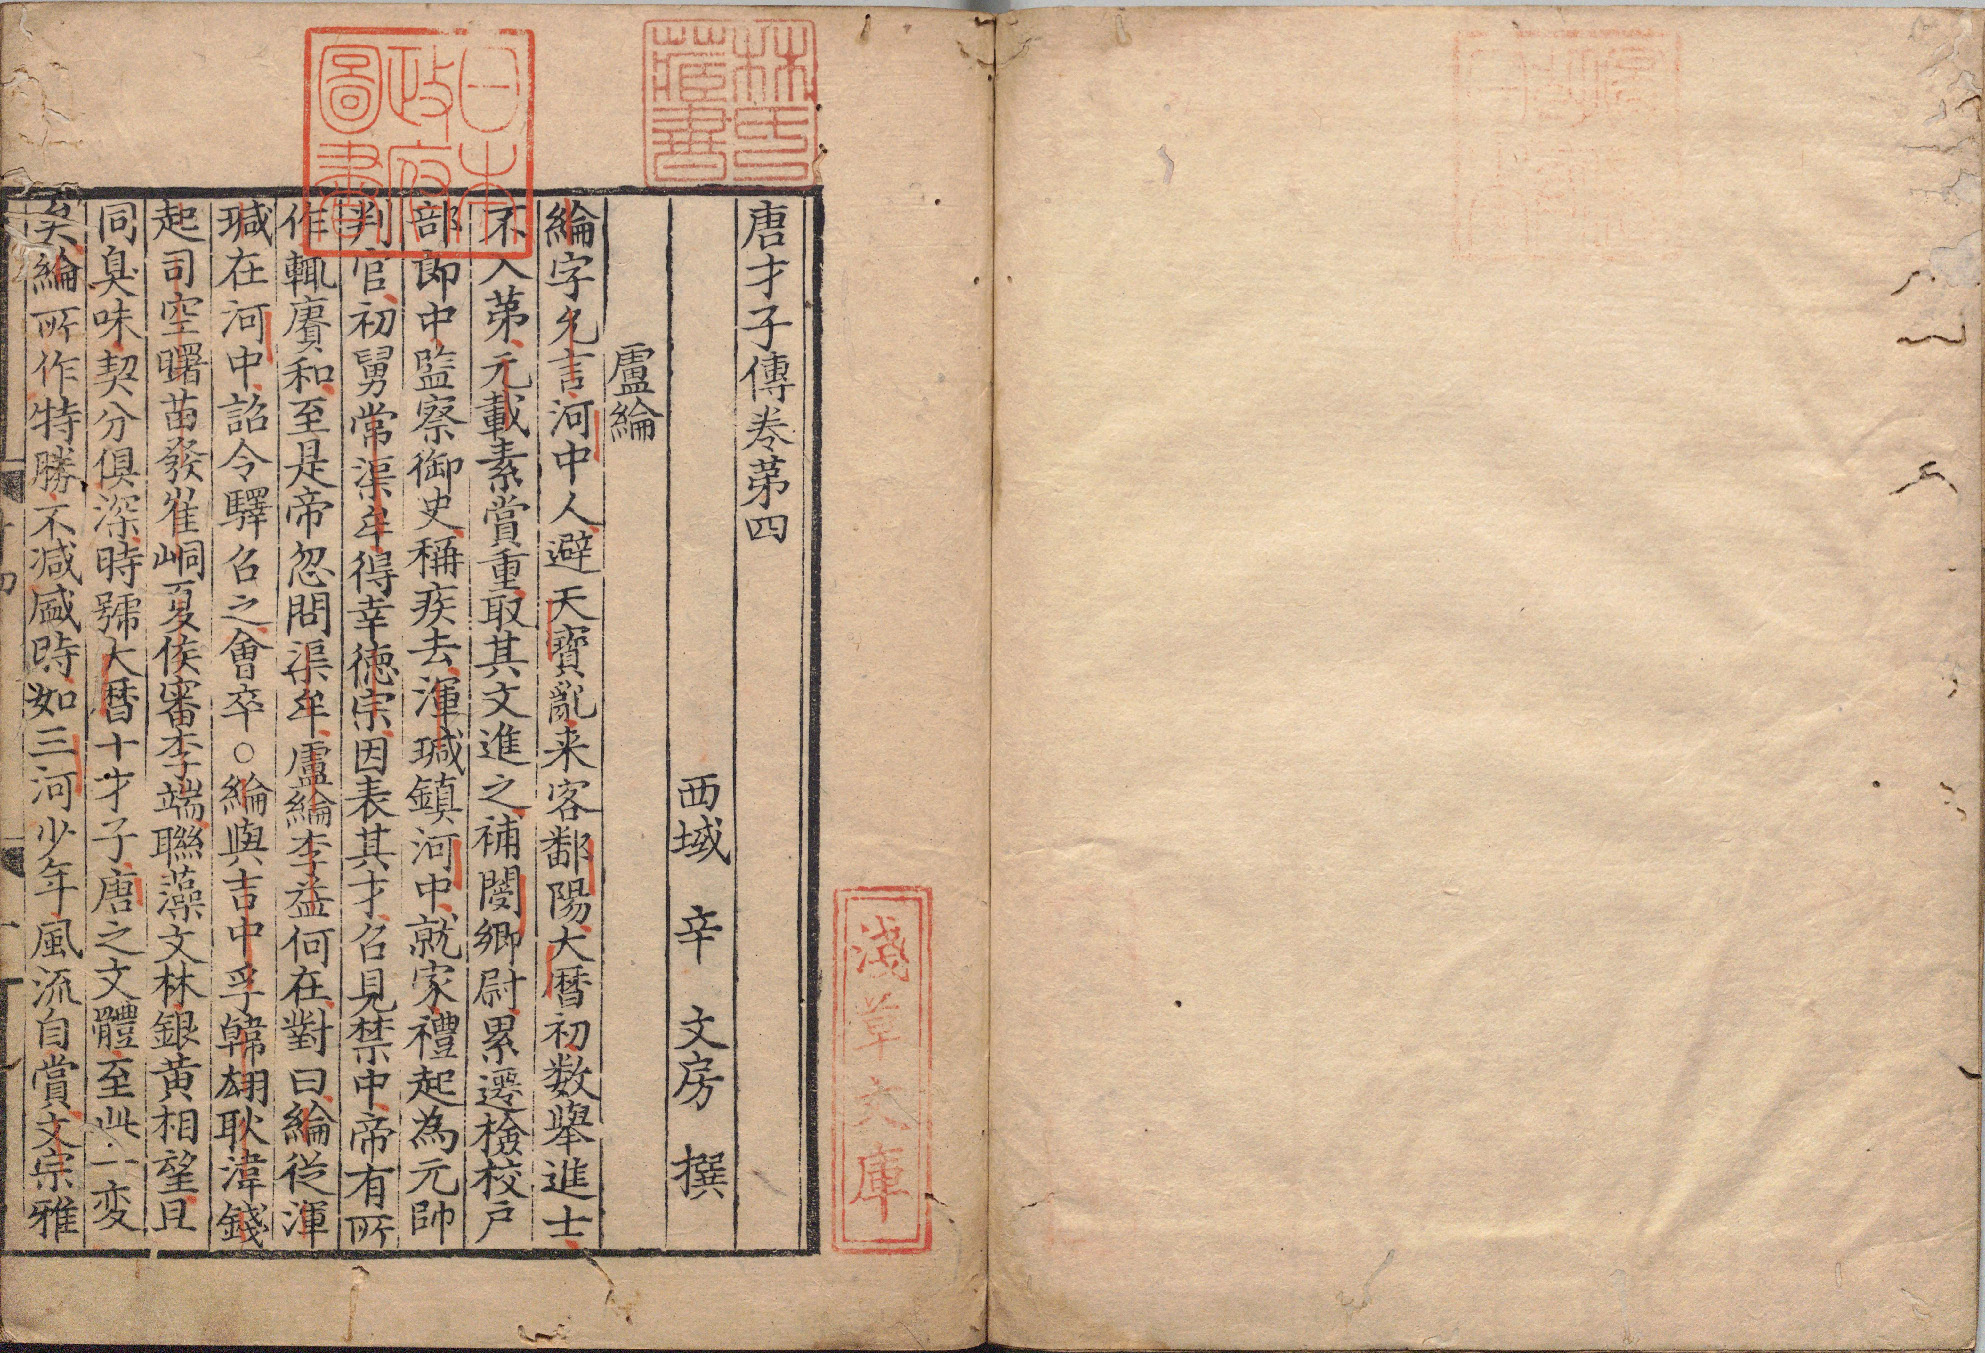 唐才子傳卷第四
西域 辛 文房 撰
盧綸
綸字允言河中人避天寶亂来客鄱陽大曆初数舉進士
不入第元載素賞重取其文進之補閿鄉尉累遷檢校戶
部郎中監察御史稱疾去渾瑊鎮河中就家禮起為元帥
判官初舅常渠牟得幸德宗因表其才召見禁中帝有所
作輒賡和至是帝忽問渠牟盧綸李益何在對曰綸從渾
瑊在河中詔令驛召之會卒○綸與吉中孚韓翃耿湋錢
起司空曙苗發崔峒夏侯審李端聯藻文林銀黄相望且
同臭味契分俱深時號大曆十才子唐之文體至此一変
矣綸所作特勝不减盛時如三河少年風流自賞文宗雅
日本
政府
圖書
林氏
藏書
淺草文庫